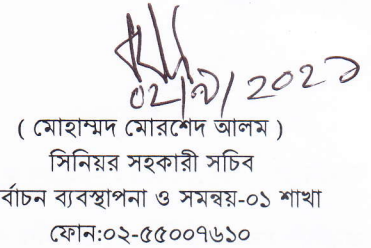 ( মোহাম্মদ মোরশেদ আলম )
সিনিয়র সহকারী সচিব
র্বাচন ব্যবস্থাপনা ও সমন্বয়-০১ শাখা
ফোন:০২-৫৫০০৭৬১০